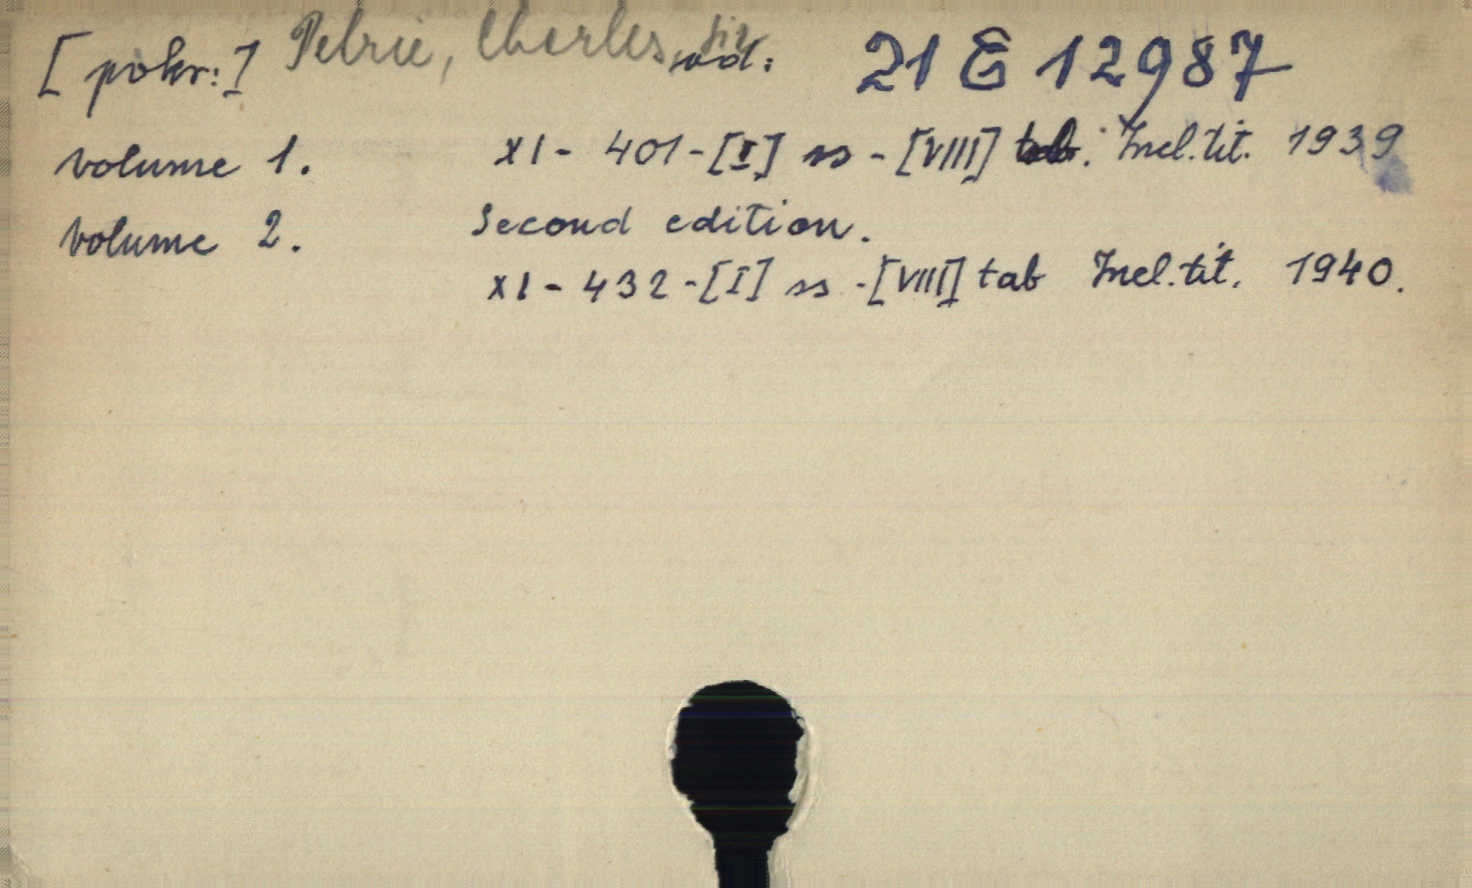 [pokr:] Petrie, Charles, sir vyd: 21 E 12987
volume 1. XI - 401 - [I] ss - [VIII] tab. Incl. tit. 1939
volume 2. Second edition.
XI - 432 - [I] ss - [VIII] tab Incl. tit. 1940.